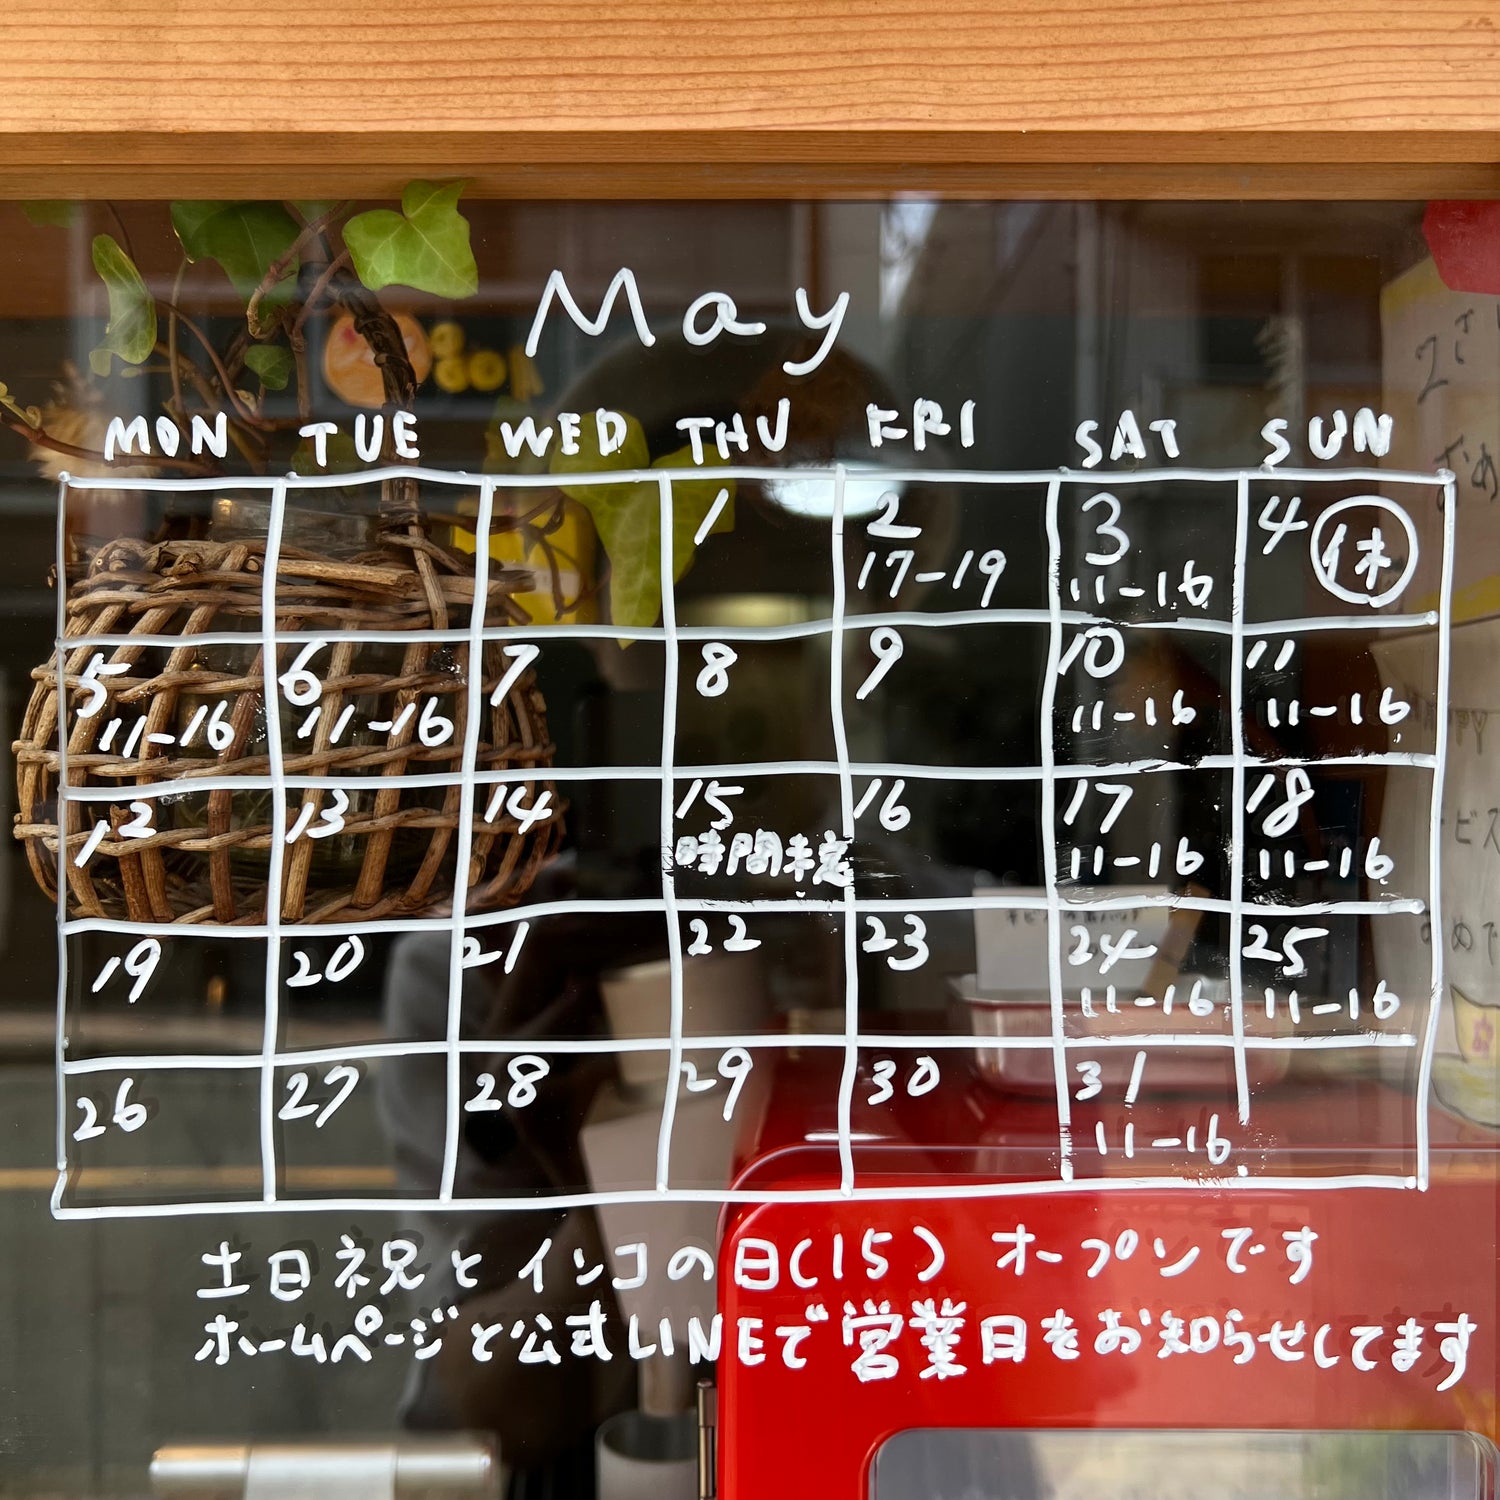 May
MON TUE WED THU FRI SAT SUN
1 2 3 4 休
17-19 11-16
5 6 7 8 9 10 11
11-16 11-16 11-16 11-16
12 13 14 15 16 17 18
時間未定 11-16 11-16
19 20 21 22 23 24 25
11-16 11-16
26 27 28 29 30 31
11-16
土日祝とインコの日(15) オープンです
ホームページと公式LINEで営業日をお知らせしてます